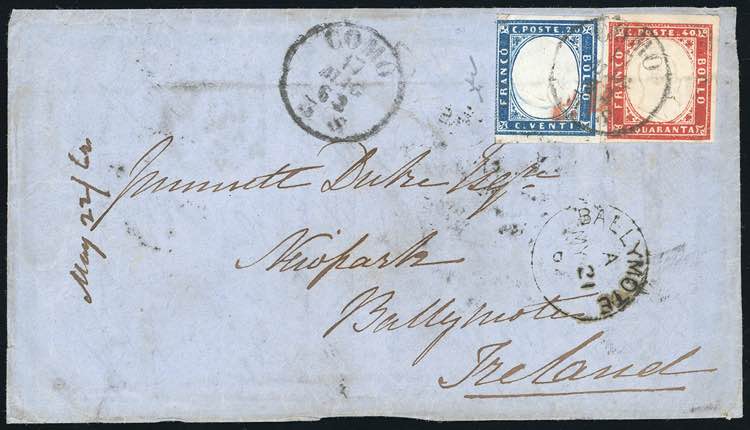 COMO
17
MAG
62
C. POSTE. 20
FRANCO
BOLLO
C. VENTI
C. POSTE. 40.
FRANCO
BOLLO
QUARANTA
Duke Esqre
Newpark
Ballymote
Ireland
BALLYMOTE
A
21
May 22/62